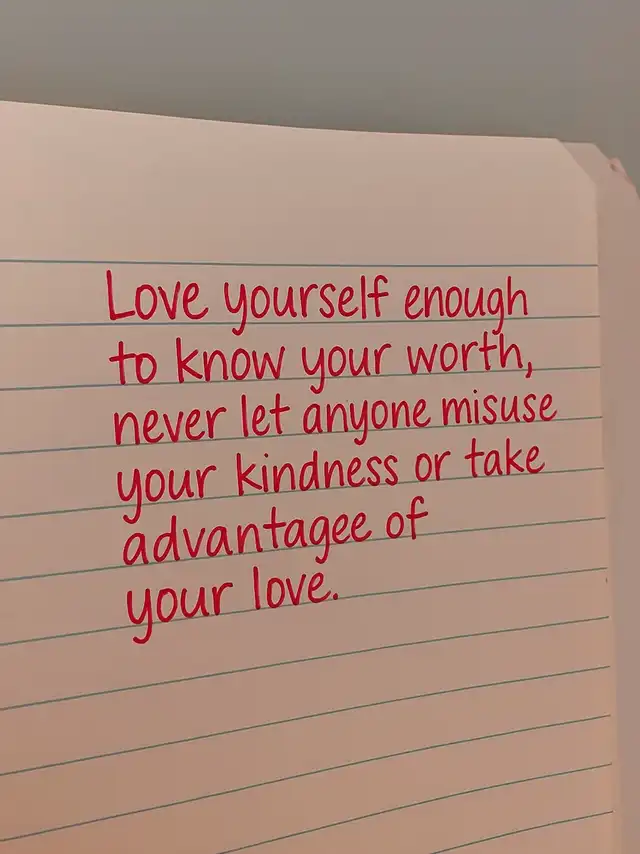 Love yourself enough
to know your worth,
never let anyone misuse
your kindness or take
advantagee of
your love.